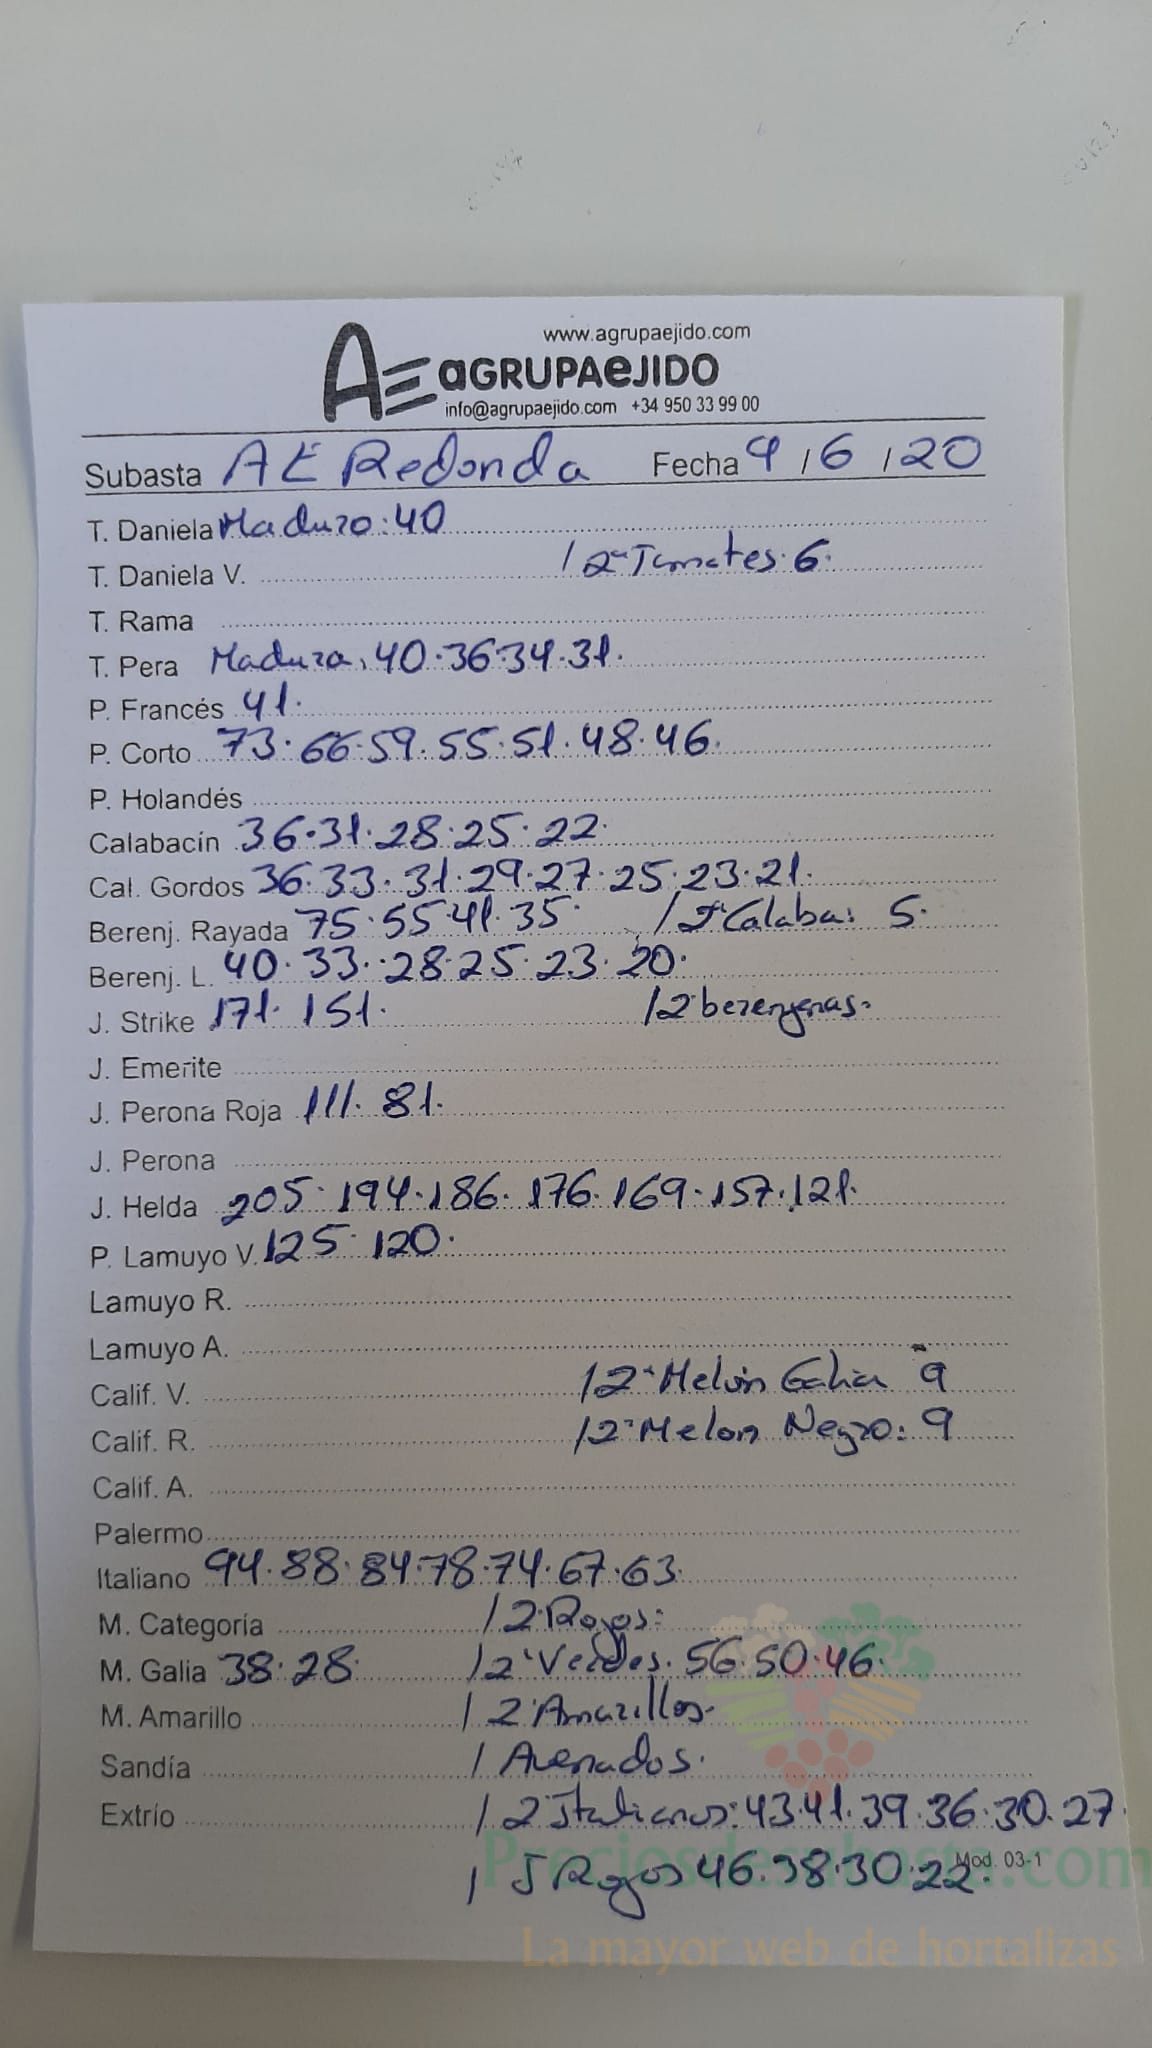 www.agrupaejido.com
AE aGRUPAeJIDO
info@agrupaejido.com +34 950 33 99 00
Subasta AE Redonda Fecha 9/6/20
T. Daniela Maduro: 40
T. Daniela V. / 2ª Tomates. 6.
T. Rama
T. Pera Madura. 40.36.34.31.
P. Francés 41.
P. Corto 73.66.59.55.51.48.46.
P. Holandés
Calabacín 36.31.28.25.22.
Cal. Gordos 36.33.31.29.27.25.23.21.
Berenj. Rayada 75.55.41.35. / 2ª Calaba: 5.
Berenj. L. 40.33.28.25.23.20.
J. Strike 171.151. / 2ª berenjenas.
J. Emerite
J. Perona Roja 111.81.
J. Perona
J. Helda 205.194.186.176.169.157.121.
P. Lamuyo V. 125.120.
Lamuyo R.
Lamuyo A.
Calif. V. / 2ª Melón Galia 9
Calif. R. / 2ª Melon Negro: 9
Calif. A.
Palermo
Italiano 94.88.84.78.74.67.63.
M. Categoría / 2ª Rojos:
M. Galia 38.28 / 2ª Verdes. 56.50.46.
M. Amarillo / 2ª Amarillos.
Sandía /
Extrío / 2ª Italianos: 43.41.39.36.30.27.
/ J Rojos 46.38.30.22.
Mod. 03-1
Preciosdesubasta.com
La mayor web de hortalizas